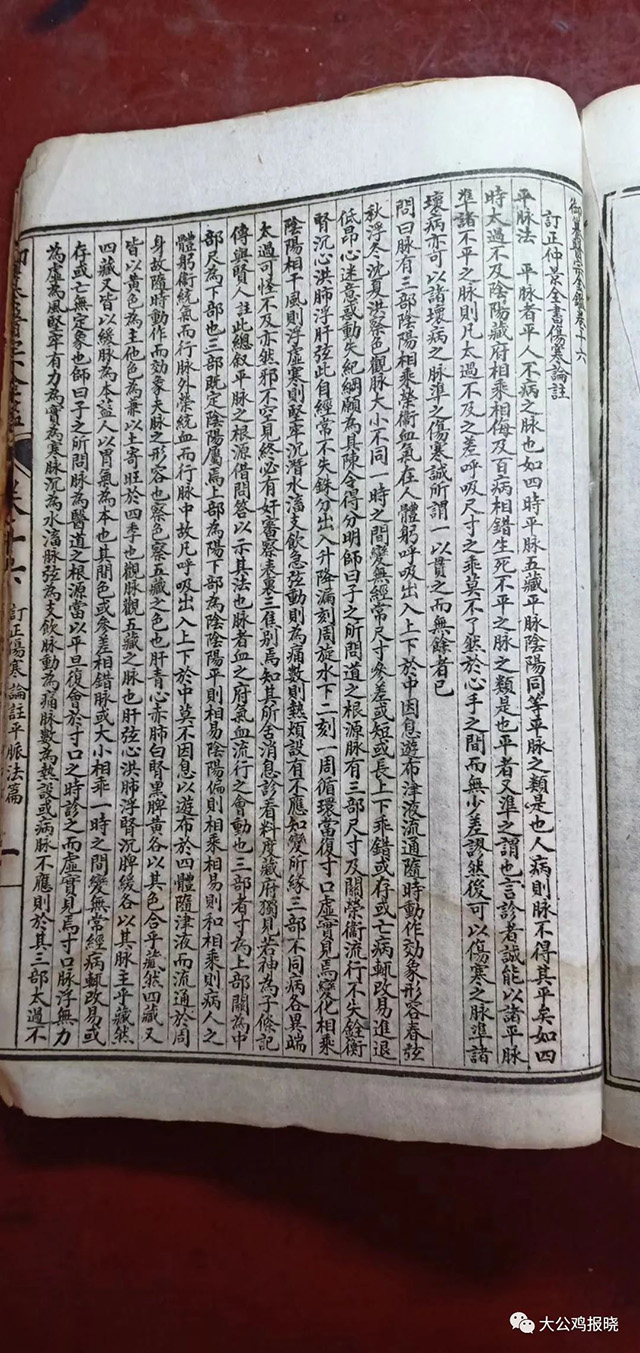 御纂醫宗金鑑卷十六
訂正仲景全書傷寒論註
平脈法 平脈者平人不病之脈也如四時平脈五藏平脈陰陽同等平脈之類是也人病則脈不得其平矣如四
時太過不及陰陽藏府相乘相侮及百病相錯生死不平之脈之類是也平者又準之謂也言診者誠能以諸平脈
準諸不平之脈則凡太過不及之差呼吸尺寸之乖莫不了然於心手之間而無少差謬然後可以傷寒之脈準諸
壞病亦可以諸壞病之脈準之傷寒誠所謂一以貫之而無餘者已
問曰脈有三部陰陽相乘榮衞血氣在人體躬呼吸出入上下於中因息遊布津液流通隨時動作効象形容春弦
秋浮冬沈夏洪察色觀脈大小不同一時之間變無經常尺寸參差或短或長上下乖錯或存或亡病輒改易進退
低昂心迷意惑動失紀綱願為具陳令得分明師曰子之所問道之根源脈有三部尺寸及關榮衞流行不失銓衡
腎沉心洪肺浮肝弦此自經常不失銖分出入升降漏刻周旋水下二刻一周循環當復寸口虛實見焉變化相乘
陰陽相干風則浮虛寒則堅牢沉潛水滀支飲急弦動則為痛數則熱煩設有不應知變所緣三部不同病各異端
太過可怪不及亦然邪不空見終必有奸審察表裏三焦別焉知其所舍消息診看料度藏府獨見若神為子條記
傳與賢人註此總叙平脈之根源借問答以示其法也脈者血之府氣血流行之會動也三部者寸為上部關為中
部尺為下部也三部既定陰陽屬焉上部為陽下部為陰陰陽平則相易陰陽偏則相乘相易則和相乘則病人之
體躬衞統氣而行脈外榮統血而行脈中故凡呼吸出入上下於中莫不因息以遊布於四體隨津液而流通於周
身故隨時動作而効象夫脈之形容也察色察五藏之色也肝青心赤肺白腎黑脾黃各以其色合乎藏然四藏又
皆以黃色為主他色為兼以土寄旺於四季也觀脈觀五藏之脈也肝弦心洪肺浮腎沉脾緩各以其脈主乎藏然
四藏又皆以緩脈為本葢人以胃氣為本也其間色或參差相錯脈或大小相乘一時之間變無常經病輒改易或
存或亡無定象也師曰子之所問脈為醫道之根源當以平旦復會於寸口之時診之而虛實見焉寸口脈浮無力
為虛為風堅牢有力為實為寒脈沉為水滀脈弦為支飲脈動為痛脈數為熱設或病脈不應則於其三部太過不
訂正傷寒論註平脈法篇
一
大公鸡报晓